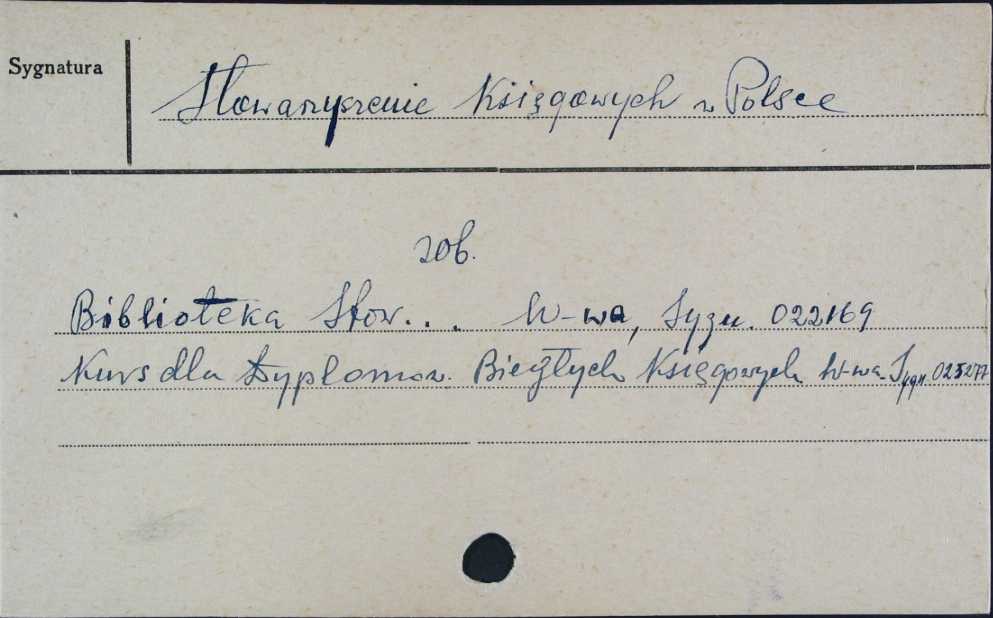 Sygnatura
Stowarzyszenie Księgowych w Polsce
zob.
Biblioteka Stow... W-wa, Sygn. 022169
Kurs dla Dyplomow. Biegłych Księgowych W-wa Sygn. 025277